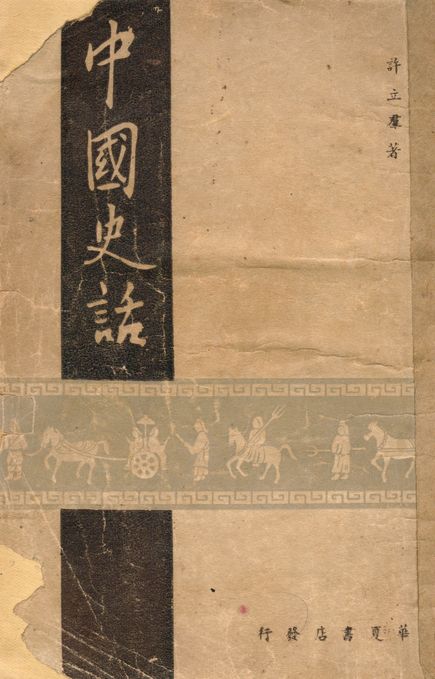 中國史話
許立羣著
華夏書店發行